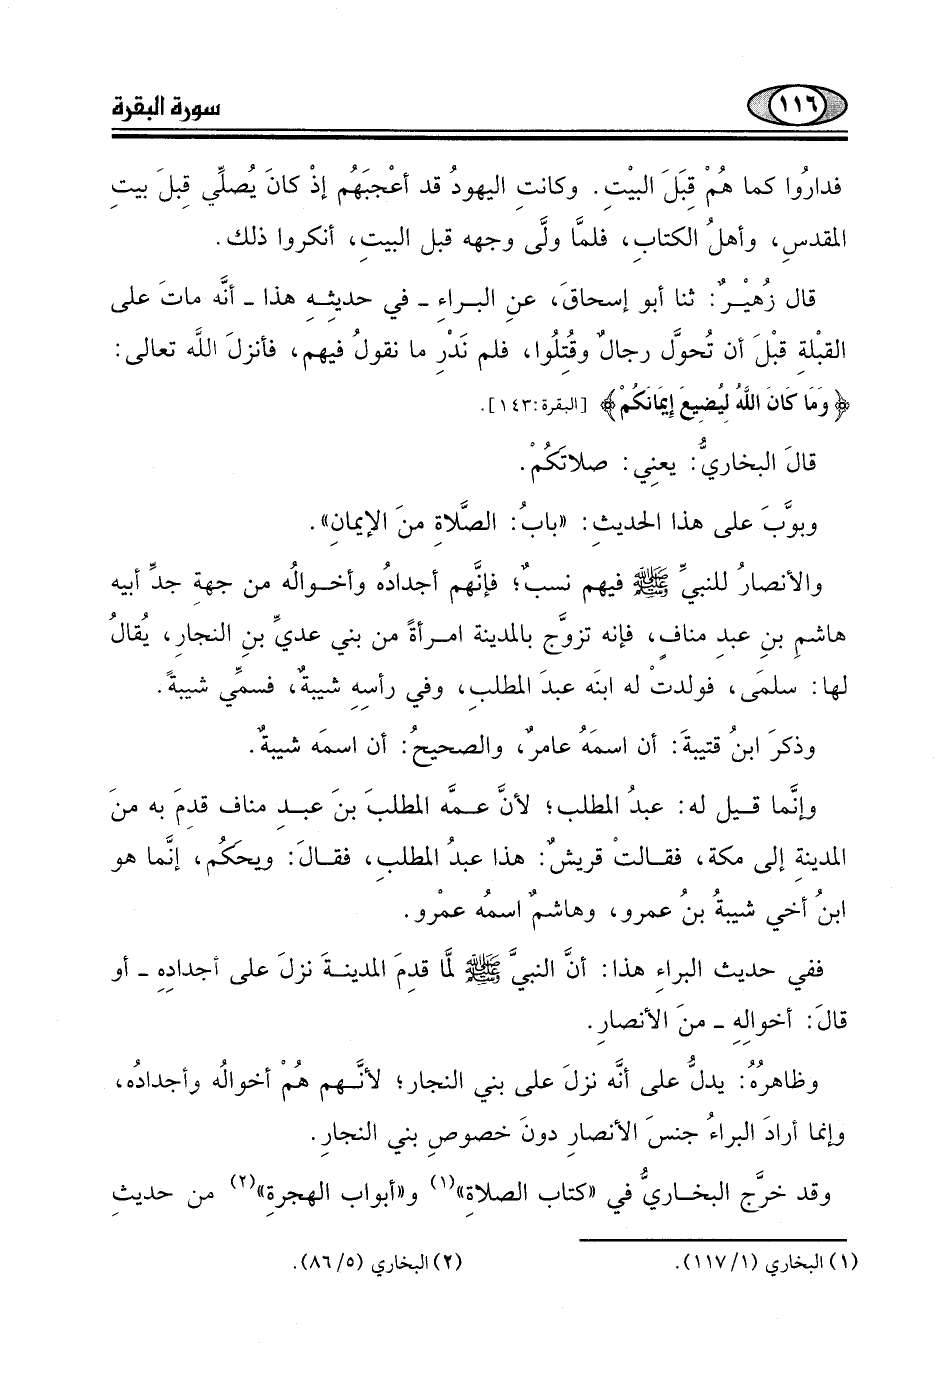 ١١٦
سورة البقرة
فدارُوا كما هُمْ قِبَلَ البيْتِ. وكانتِ اليهودُ قد أعْجبَهُم إذْ كانَ يُصلِّي قِبلَ بيتِ
المقدسِ، وأهلُ الكتابِ، فلمَّا ولَّى وجهه قبل البيتِ، أنكروا ذلك.
قال زُهيْرٌ: ثنا أبو إسحاقَ، عنِ البراءِ - في حديثِهِ هذا - أنَّه ماتَ على
القبْلةِ قبْلَ أن تُحوَّل رجالٌ وقُتِلُوا، فلم نَدْرِ ما نقولُ فيهم، فأنزلَ اللَّه تعالى:
﴿وَمَا كَانَ اللَّهُ لِيُضِيعَ إِيمَانَكُمْ﴾ [البقرة:١٤٣].
قالَ البخاريُّ: يعنِي: صلاتَكُمْ.
وبوَّبَ على هذا الحديثِ: «بابُ: الصَّلاةِ منَ الإيمانِ».
والأنصارُ للنبيِّ ﷺ فيهم نسبٌ؛ فإنَّهم أجدادُه وأخوالُه من جهةِ جدِّ أبيه
هاشمِ بنِ عبدِ منافٍ، فإنه تزوَّج بالمدينة امرأةً من بني عديِّ بنِ النجارِ، يُقالُ
لها: سلمَى، فولدتْ له ابنَه عبدَ المطلبِ، وفي رأسِهِ شيبةٌ، فسمِّي شيبةً.
وذكرَ ابنُ قتيبةَ: أن اسمَهُ عامرٌ، والصحيحُ: أن اسمَه شيبةٌ.
وإنَّما قيل له: عبدُ المطلب؛ لأنَّ عمَّه المطلبَ بنَ عبدِ مناف قدِمَ به منَ
المدينةِ إلى مكة، فقالتْ قريشٌ: هذا عبدُ المطلبِ، فقالَ: ويحكُم، إنَّما هو
ابنُ أخي شيبةُ بنُ عمرو، وهاشمٌ اسمُه عمْرو.
ففي حديث البراءِ هذا: أنَّ النبيَّ ﷺ لمَّا قدِمَ المدينةَ نزلَ على أجدادِهِ - أو
قالَ: أخوالِهِ - منَ الأنصارِ.
وظاهرُهُ: يدلُّ على أنَّه نزلَ على بني النجار؛ لأنَّهم هُمْ أخوالُه وأجدادُه،
وإنما أرادَ البراءُ جنسَ الأنصارِ دونَ خصوصِ بني النجارِ.
وقد خرَّج البخاريُّ في «كتاب الصلاةِ»(١) و«أبواب الهجرةِ»(٢) من حديثِ
(١) البخاري (١/١١٧).
(٢) البخاري (٥/٨٦).